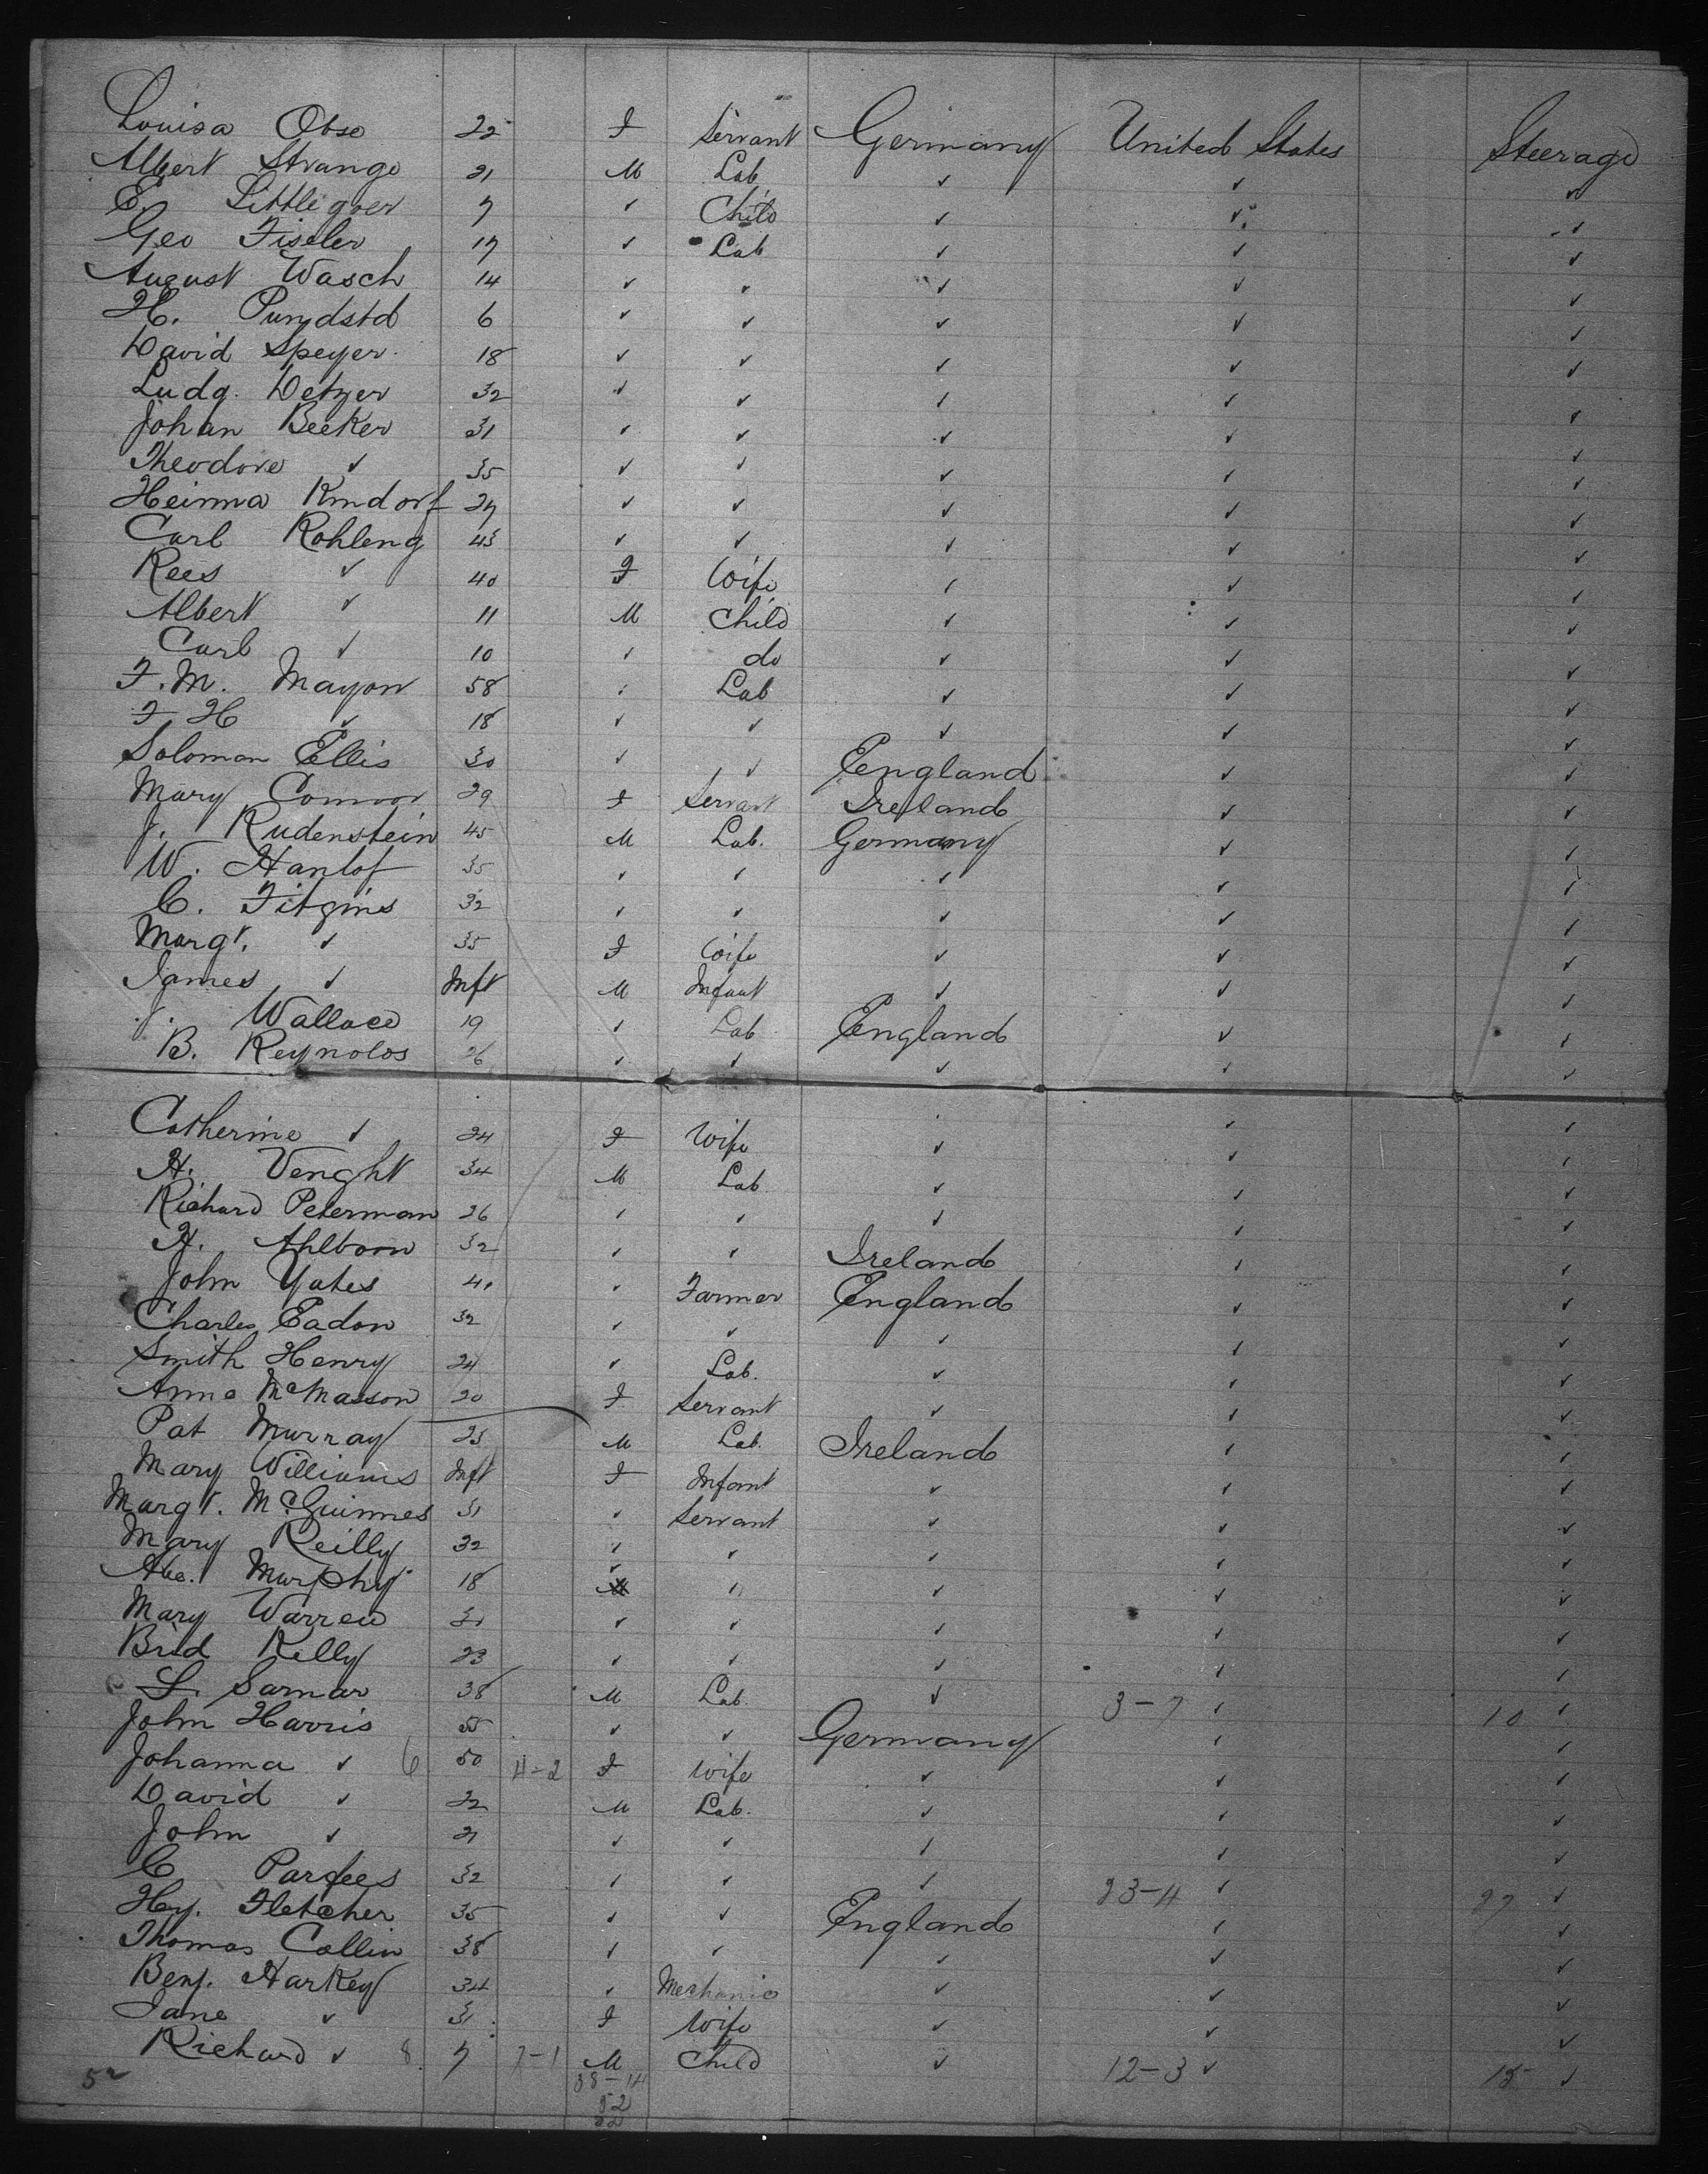 Louisa Obse 22 F Servant Germany United States Steerage
Albert Strange 21 M Lab ✓ ✓ ✓
E. Littligoer 7 ✓ Child ✓ ✓ ✓
Geo Fiseler 17 ✓ Lab ✓ ✓ ✓
August Wasch 14 ✓ ✓ ✓ ✓ ✓
H. Pundstd 6 ✓ ✓ ✓ ✓ ✓
David Speyer 18 ✓ ✓ ✓ ✓ ✓
Ludg. Detzer 32 ✓ ✓ ✓ ✓ ✓
Johan Beeker 31 ✓ ✓ ✓ ✓ ✓
Theodore ✓ 35 ✓ ✓ ✓ ✓ ✓
Heinma Kindorf 27 ✓ ✓ ✓ ✓ ✓
Carl Rohleng 43 ✓ ✓ ✓ ✓ ✓
Rees ✓ 40 F Wife ✓ ✓ ✓
Albert ✓ 11 M Child ✓ ✓ ✓
Carl ✓ 10 ✓ do ✓ ✓ ✓
F. M. Mayon 58 ✓ Lab ✓ ✓ ✓
F H ✓ 18 ✓ ✓ ✓ ✓ ✓
Soloman Ellis 30 ✓ ✓ England ✓ ✓
Mary Connor 29 F Servant Ireland ✓ ✓
J. Rudenstein 45 M Lab. Germany ✓ ✓
W. Hanlof 35 ✓ ✓ ✓ ✓ ✓
C. Fitgins 32 ✓ ✓ ✓ ✓ ✓
Margt. ✓ 35 F Wife ✓ ✓ ✓
James ✓ Inft M Infant ✓ ✓ ✓
J. Wallace 19 ✓ Lab England ✓ ✓
B. Reynolds 26 ✓ ✓ ✓ ✓ ✓
Catherine ✓ 24 F Wife ✓ ✓ ✓
H. Venght 34 M Lab ✓ ✓ ✓
Richard Peterman 26 ✓ ✓ ✓ ✓ ✓
H. Ahlborn 32 ✓ ✓ Ireland ✓ ✓
John Yates 41 ✓ Farmer England ✓ ✓
Charles Eadon 32 ✓ ✓ ✓ ✓ ✓
Smith Henry 24 ✓ Lab. ✓ ✓ ✓
Anne McMasson 20 F Servant ✓ ✓ ✓
Pat Murray 23 M Lab. Ireland ✓ ✓
Mary Williams Inft F Infant ✓ ✓ ✓
Margt. McGuinnes 31 ✓ Servant ✓ ✓ ✓
Mary Reilly 32 ✓ ✓ ✓ ✓ ✓
Abe. Murphy 18 ✓ ✓ ✓ ✓ ✓
Mary Warren 31 ✓ ✓ ✓ ✓ ✓
Brid Kelly 23 ✓ ✓ ✓ ✓ ✓
L. Samar 38 M Lab. ✓ 3-7 ✓ 10 ✓
John Harris 55 ✓ ✓ Germany ✓ ✓
Johanna ✓ 6 50 4-2 F Wife ✓ ✓ ✓
David ✓ 22 M Lab. ✓ ✓ ✓
John ✓ 21 ✓ ✓ ✓ ✓ ✓
C Parfees 32 ✓ ✓ ✓ 23-4 ✓ 27 ✓
Hey. Fletcher 35 ✓ ✓ England ✓ ✓
Thomas Collin 38 ✓ ✓ ✓ ✓ ✓
Benj. Harkey 34 ✓ Mechanic ✓ ✓ ✓
Jane ✓ 31 F Wife ✓ ✓ ✓
Richard ✓ 8 7 7-1 M Child ✓ 12-3 ✓ 15 ✓
52 38-14
52